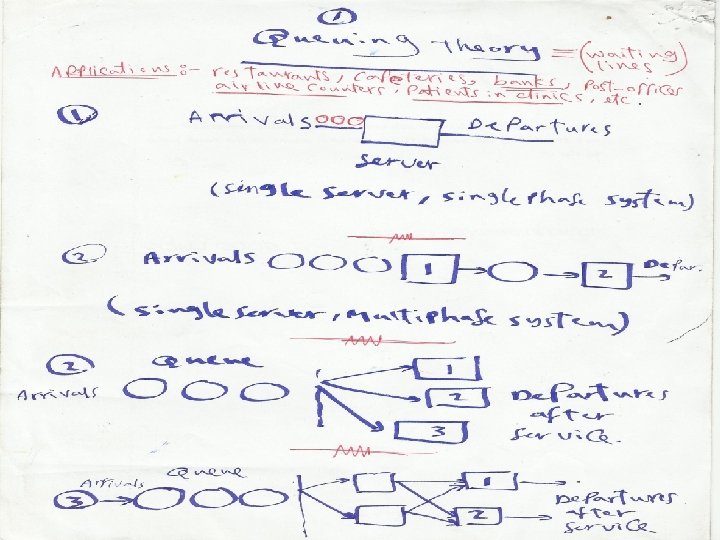 ①
Queuing Theory = (waiting lines)
Applications :- restaurants, cafeteries, banks, Post-offices
airline counters, Patients in clinics, etc.
① Arrivals Departures
Server
(single server, single phase system)
② Arrivals 1 2 Depar.
(single server, Multiphase system)
② Queue 1
Arrivals 2 Departures
after
3 service.
Arrivals Queue 1
③ 2 Departures
after
service